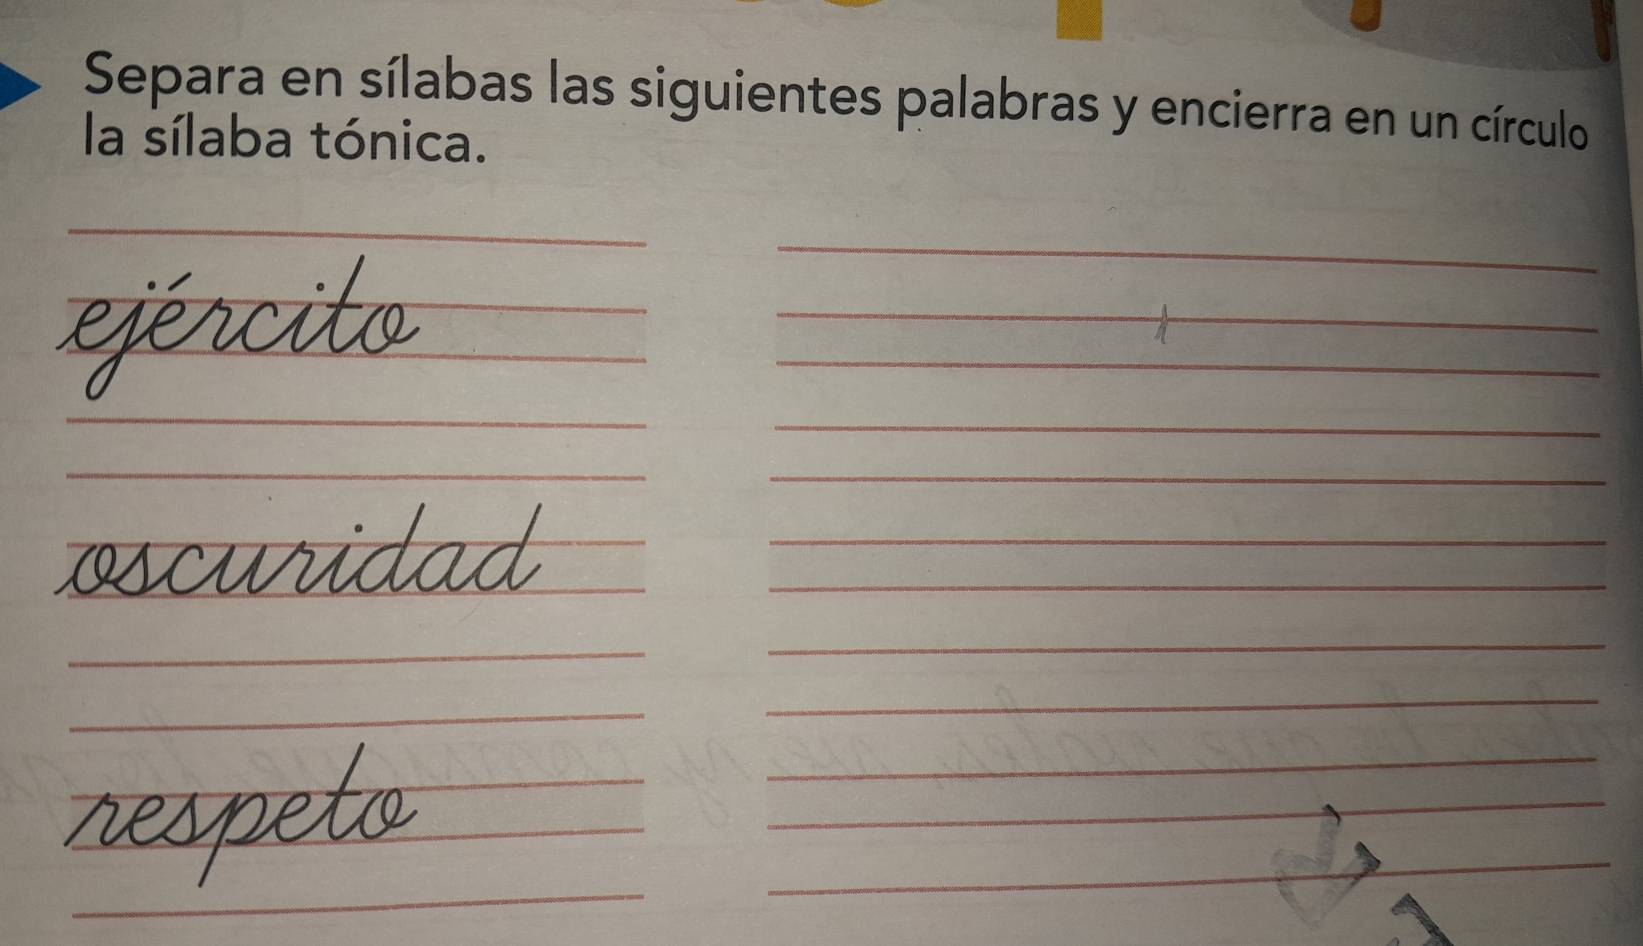 Separa en sílabas las siguientes palabras y encierra en un círculo
la sílaba tónica.
ejército
oscuridad
respeto